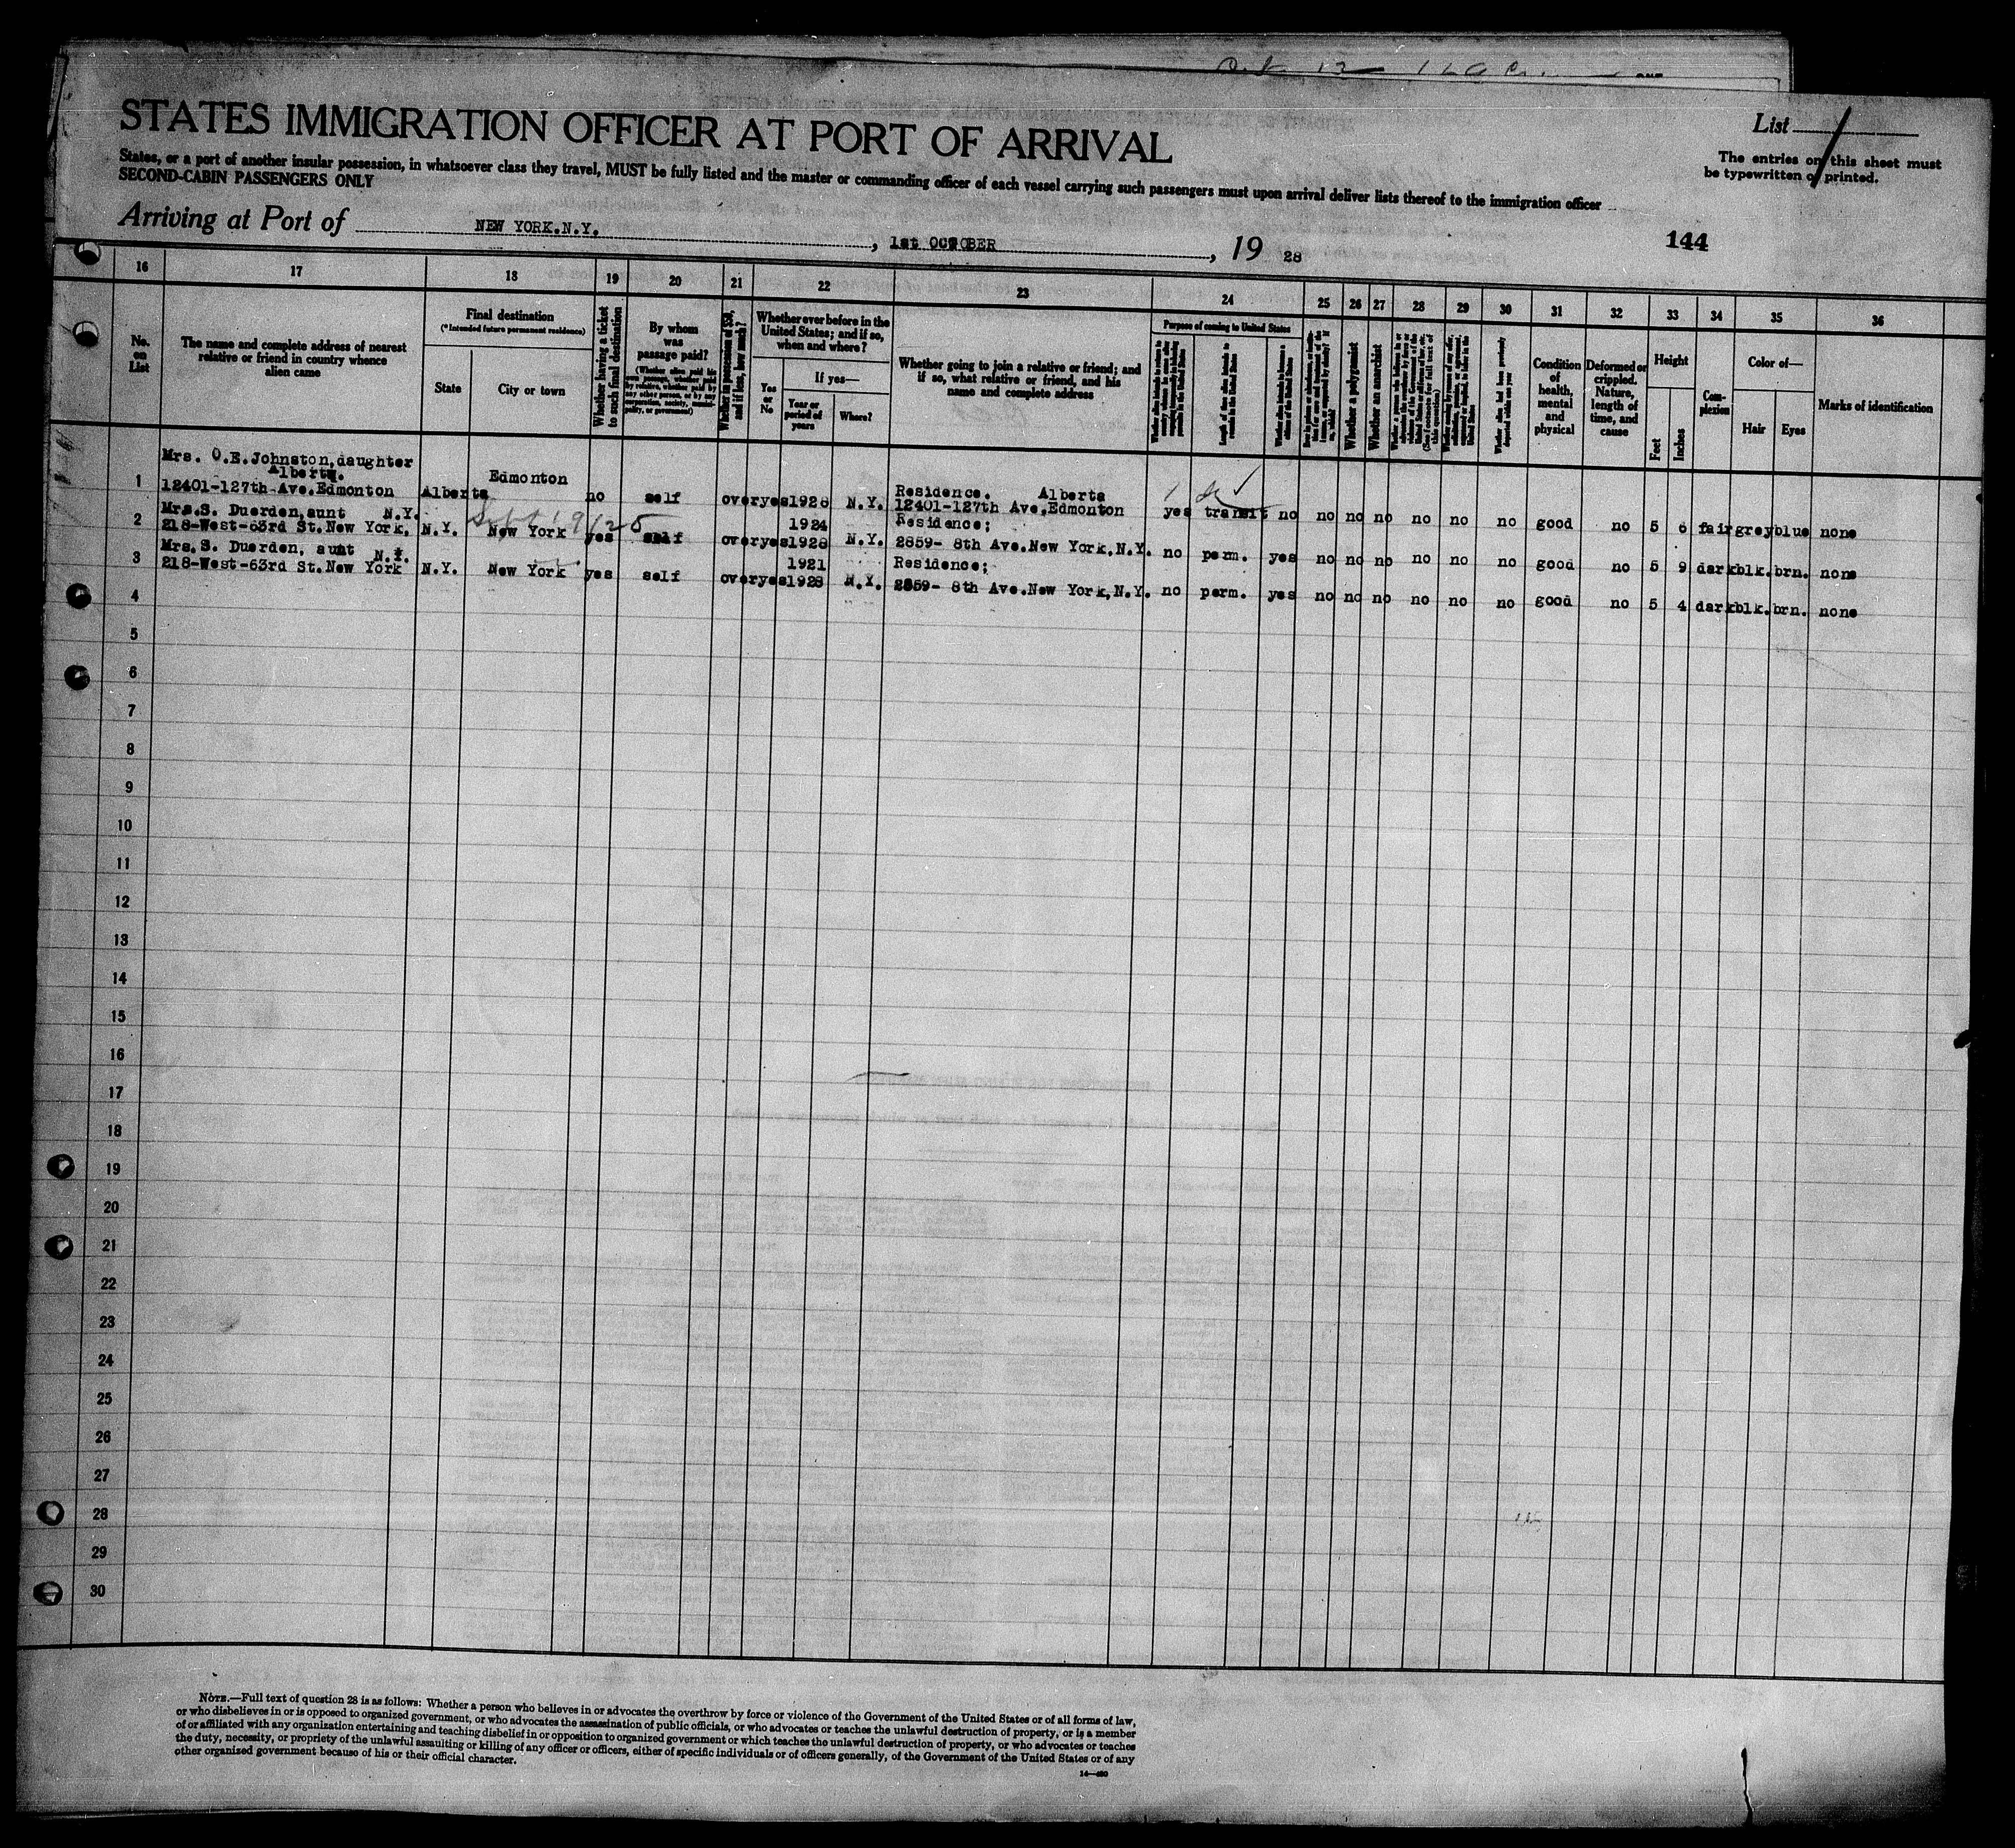 STATES IMMIGRATION OFFICER AT PORT OF ARRIVAL
List
The entries on this sheet must
be typewritten or printed.
States, or a port of another insular possession, in whatsoever class they travel, MUST be fully listed and the master or commanding officer of each vessel carrying such passengers must upon arrival deliver lists thereof to the immigration officer
SECOND-CABIN PASSENGERS ONLY
Arriving at Port of NEW YORK.N.Y. , 1st OCTOBER , 19 28
144
16 17 18 19 20 21 22 23 24 25 26 27 28 29 30 31 32 33 34 35 36
No. on List
The name and complete address of nearest
relative or friend in country whence
alien came
Final destination
(*Intended future permanent residence)
State
City or town
Whether having a ticket
to such final destination
By whom
was
passage paid?
Whether in possession of $50,
and if less, how much?
Whether ever before in the
United States; and if so,
when and where?
Yes or No
If yes—
Year or
period of
years
Where?
Whether going to join a relative or friend; and
if so, what relative or friend, and his
name and complete address
Purpose of coming to United States
Whether a polygamist
Whether an anarchist
Condition
of
health,
mental
and
physical
Deformed or
crippled.
Nature,
length of
time, and
cause
Height
Feet
Inches
Com-
plexion
Color of—
Hair
Eyes
Marks of identification
Mrs. O.E.Johnston,daughter
Alberta.
1 12401-127th Ave.Edmonton Alberta Edmonton no self over yes 1928 N.Y. Residence. Alberta
12401-127th Ave.Edmonton yes transit no no no no no no no good no 5 6 fair grey blue none
Mrs.S. Duerden,aunt N.Y.
2 218-West-63rd St.New York. N.Y. New York yes self over yes 1924
1928 N.Y. Residence;
2859- 8th Ave.New York,N.Y. no perm. yes no no no no no no good no 5 9 dark blk. brn. none
Mrs.S. Duerden, aunt N.Y.
3 218-West-63rd St.New York N.Y. New York yes self over yes 1921
1928 N.Y. Residence;
2859- 8th Ave.New York,N.Y. no perm. yes no no no no no no good no 5 4 dark blk. brn. none
4
5
6
7
8
9
10
11
12
13
14
15
16
17
18
19
20
21
22
23
24
25
26
27
28
29
30
NOTE.—Full text of question 28 is as follows: Whether a person who believes in or advocates the overthrow by force or violence of the Government of the United States or of all forms of law,
or who disbelieves in or is opposed to organized government, or who advocates the assassination of public officials, or who advocates or teaches the unlawful destruction of property, or is a member
of or affiliated with any organization entertaining and teaching disbelief in or opposition to organized government or which teaches the unlawful destruction of property, or who advocates or teaches
the duty, necessity, or propriety of the unlawful assaulting or killing of any officer or officers, either of specific individuals or of officers generally, of the Government of the United States or of any
other organized government because of his or their official character.